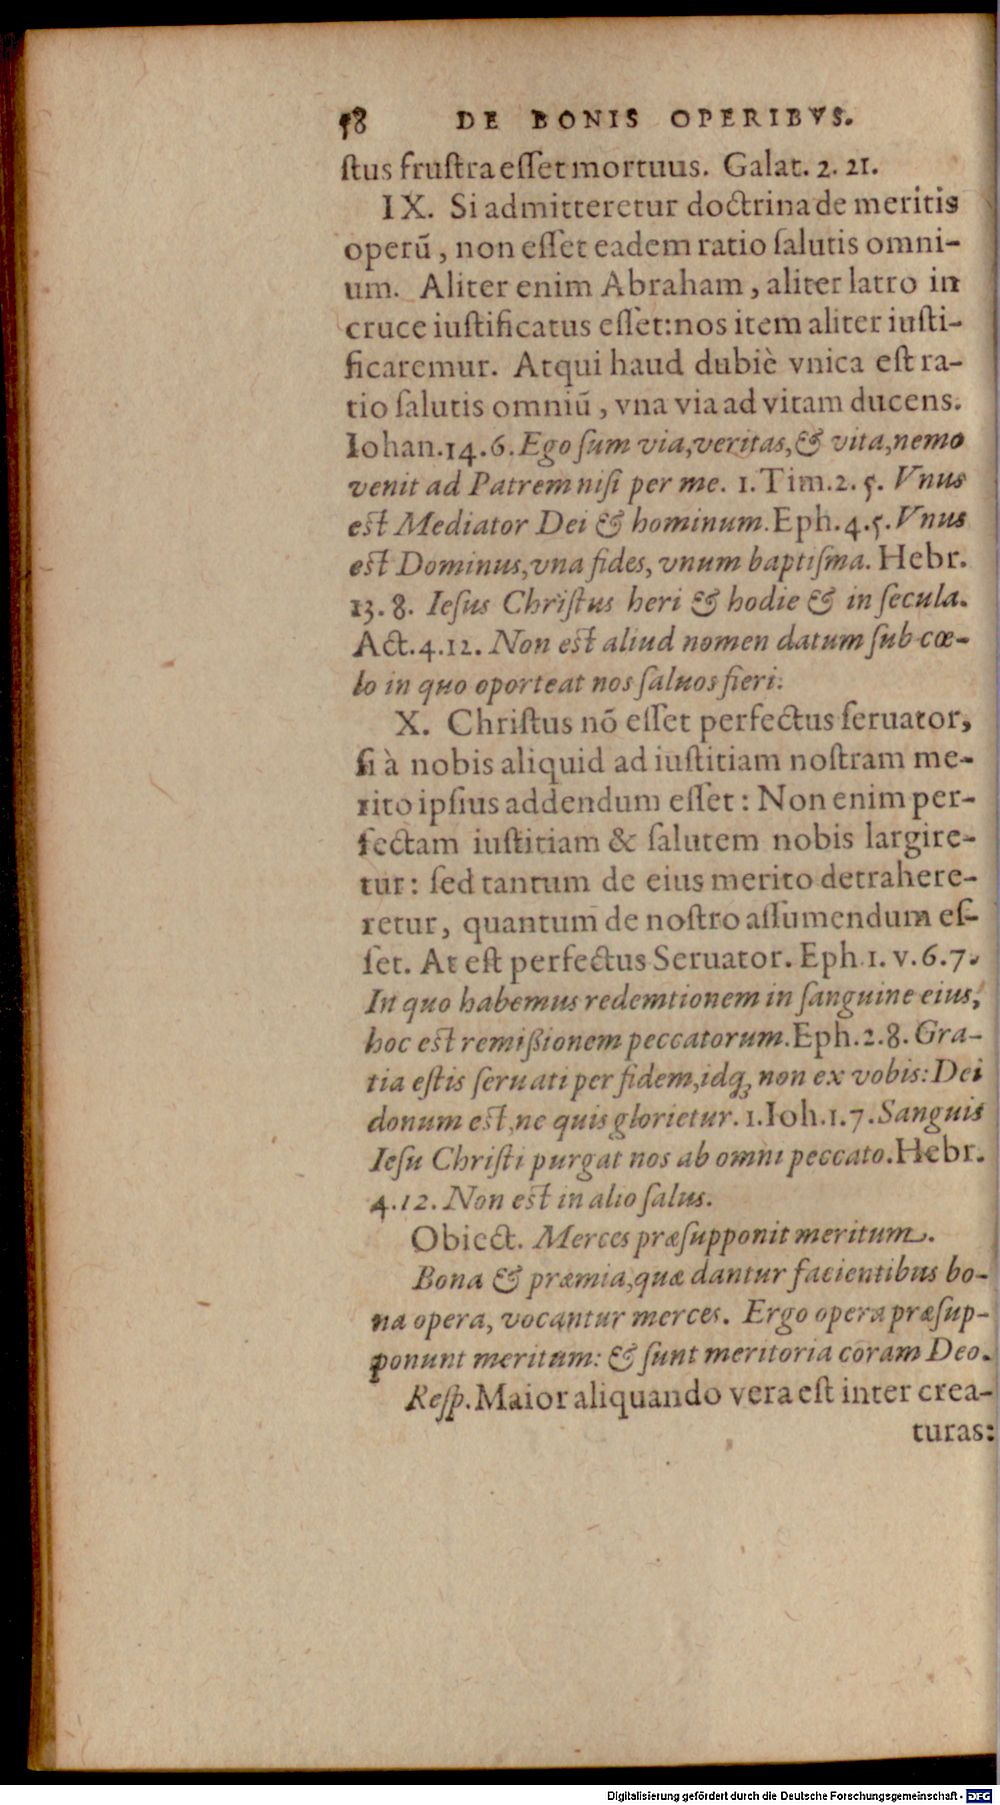 58 DE BONIS OPERIBVS.
ſtus fruſtra eſſet mortuus. Galat. 2. 21.
IX. Si admitteretur doctrina de meritis
operũ, non eſſet eadem ratio ſalutis omni-
um. Aliter enim Abraham, aliter latro in
cruce iuſtificatus eſſet: nos item aliter iuſti-
ficaremur. Atqui haud dubiè vnica eſt ra-
tio ſalutis omniũ, vna via ad vitam ducens.
Iohan. 14. 6. Ego ſum via, veritas, & vita, nemo
venit ad Patrem niſi per me. 1. Tim. 2. 5. Vnus
eſt Mediator Dei & hominum. Eph. 4. 5. Vnus
eſt Dominus, vna fides, vnum baptiſma. Hebr.
13. 8. Ieſus Chriſtus heri & hodie & in ſecula.
Act. 4. 12. Non eſt aliud nomen datum ſub cœ-
lo in quo oporteat nos ſaluos fieri.
X. Chriſtus nõ eſſet perfectus ſeruator,
ſi à nobis aliquid ad iuſtitiam noſtram me-
rito ipſius addendum eſſet: Non enim per-
fectam iuſtitiam & ſalutem nobis largire-
tur: ſed tantum de eius merito detrahere-
retur, quantum de noſtro aſſumendum eſ-
ſet. At eſt perfectus Seruator. Eph. 1. v. 6. 7.
In quo habemus redemtionem in ſanguine eius,
hoc eſt remißionem peccatorum. Eph. 2. 8. Gra-
tia eſtis ſeruati per fidem, idq; non ex vobis: Dei
donum eſt, ne quis glorietur. 1. Ioh. 1. 7. Sanguis
Ieſu Chriſti purgat nos ab omni peccato. Hebr.
4. 12. Non eſt in alio ſalus.
Obiect. Merces præſupponit meritum.
Bona & præmia, quæ dantur facientibus bo-
na opera, vocantur merces. Ergo opera præſup-
ponunt meritum: & ſunt meritoria coram Deo.
Reſp. Maior aliquando vera eſt inter crea-
turas:
Digitalisierung gefördert durch die Deutsche Forschungsgemeinschaft - DFG